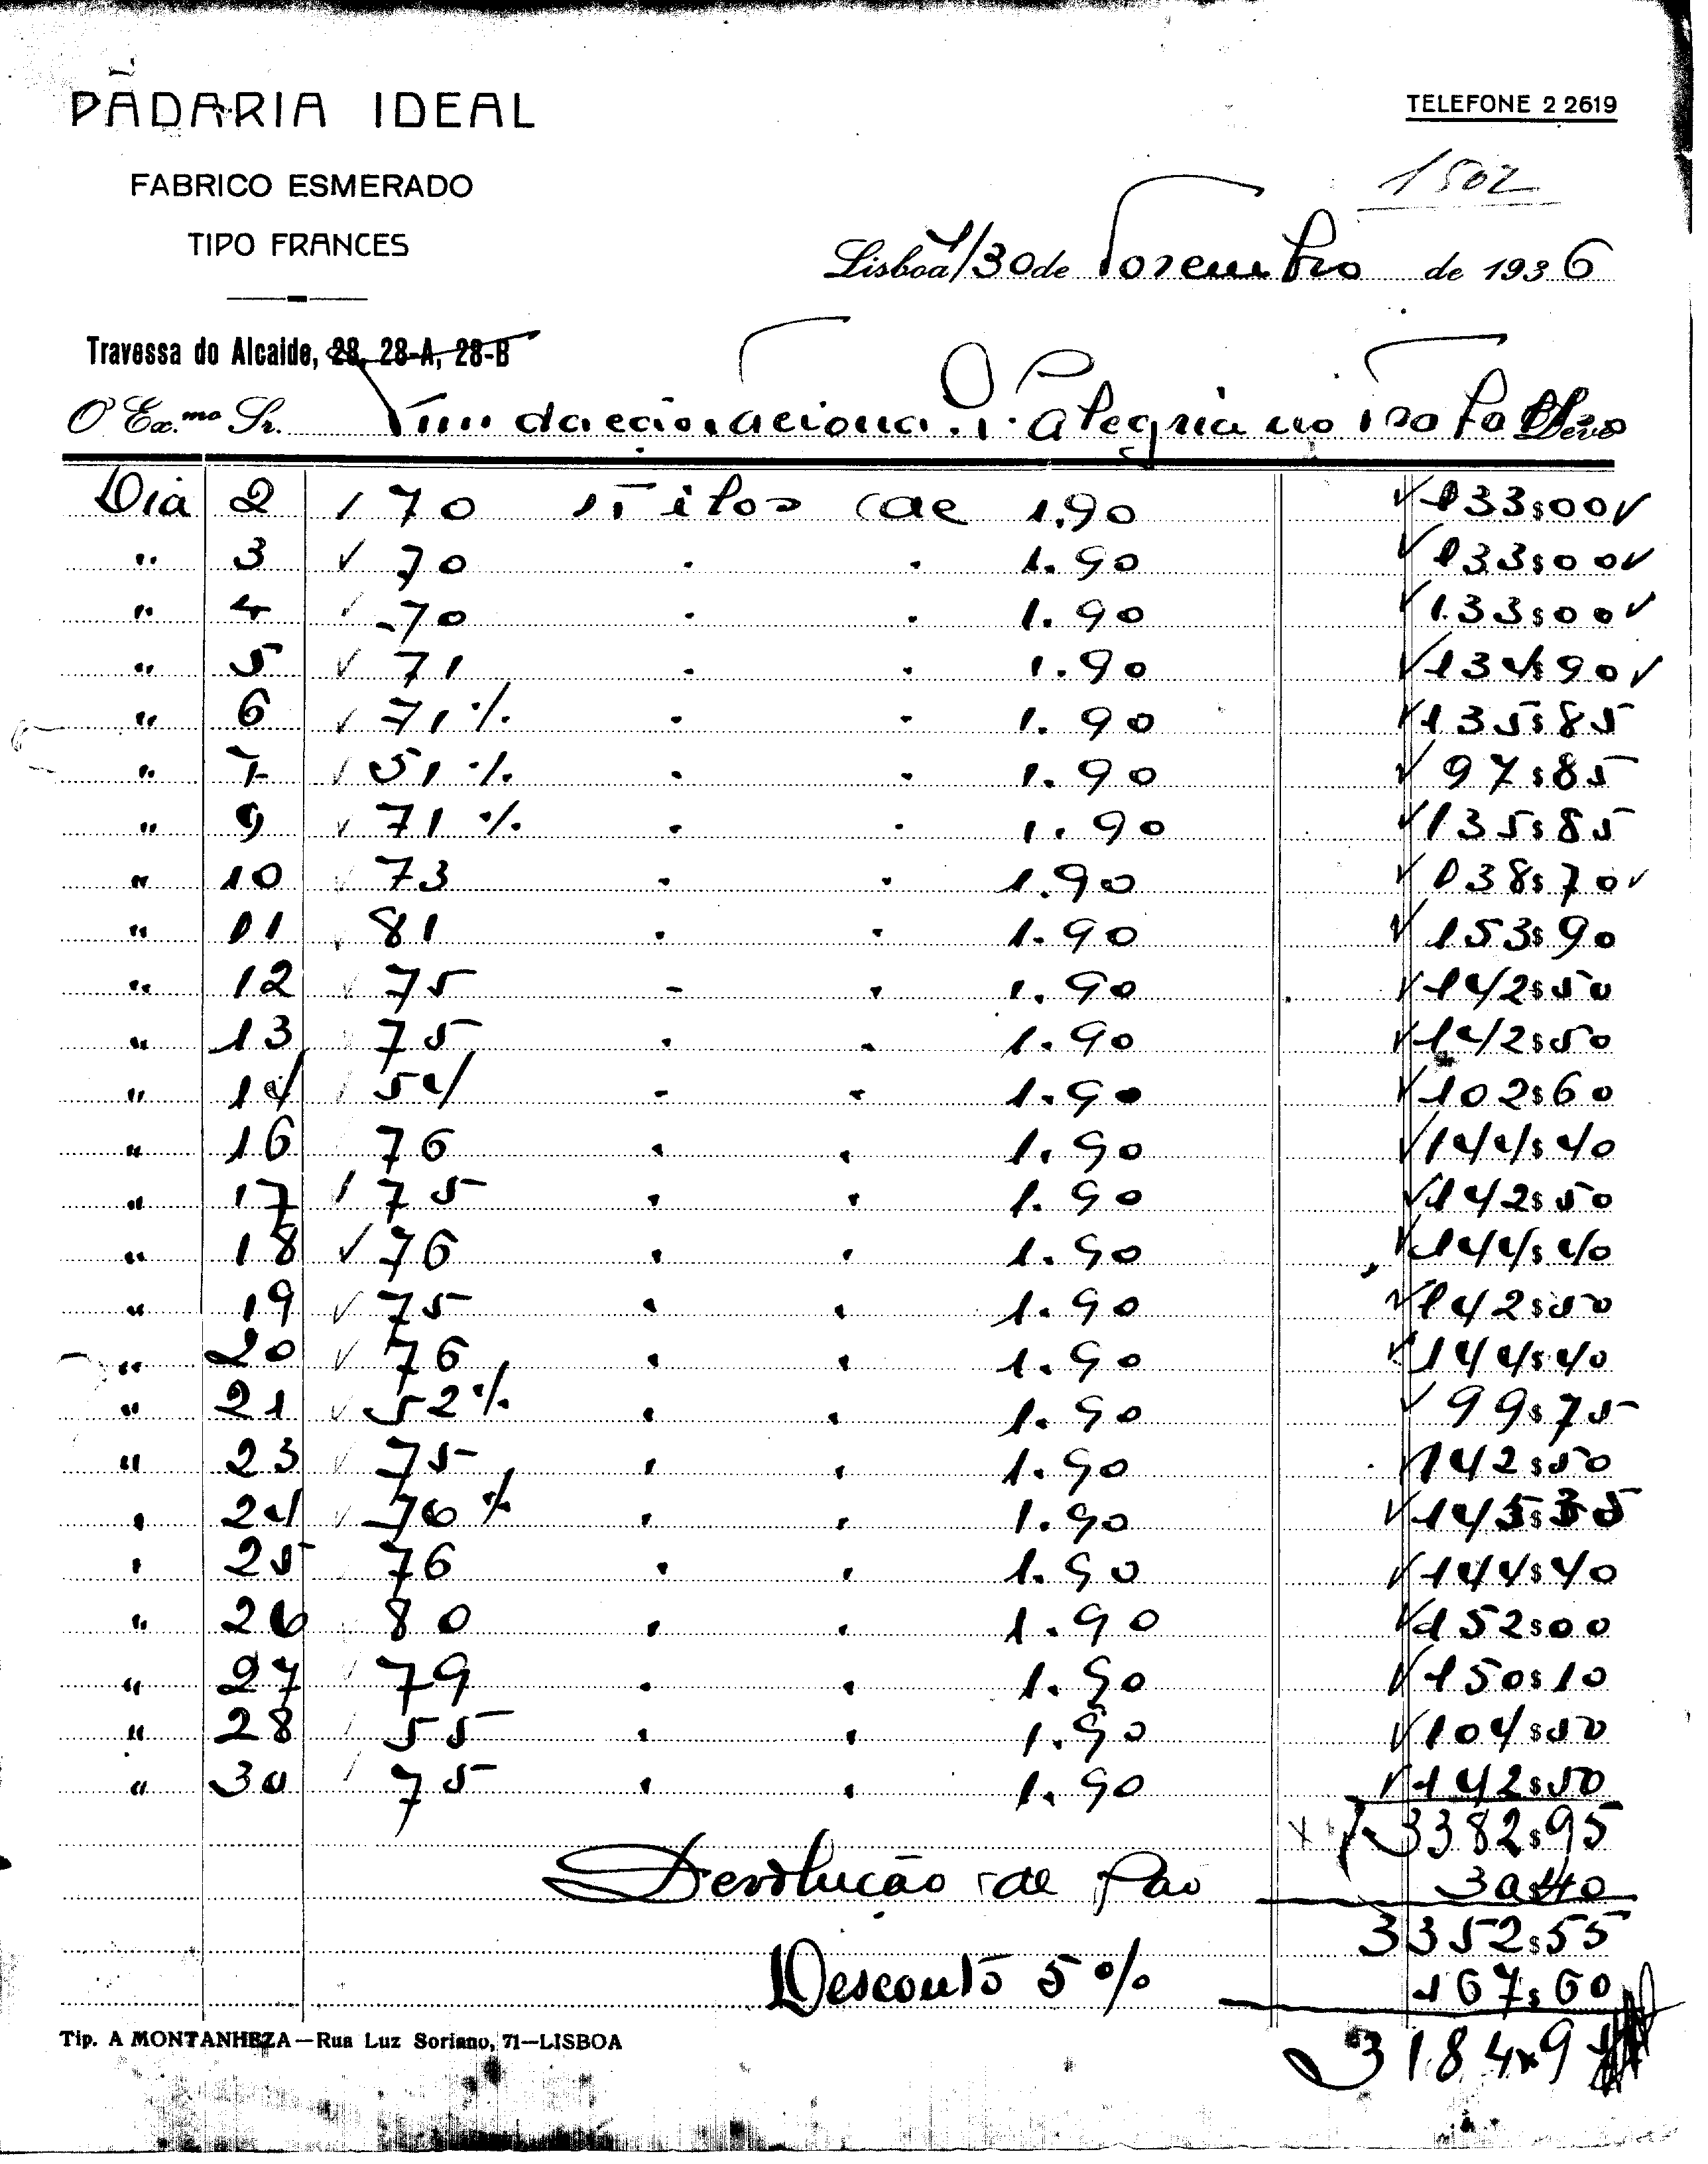 PADARIA IDEAL
TELEFONE 2 2619
FABRICO ESMERADO
1502
TIPO FRANCES
Lisboa 1/30 de Novembro de 1936
Travessa do Alcaide, 28, 28-A, 28-B
O Ex.mo Sr. Fundação Nacional P. Alegria no Trabalho Deve
Dia 2 70 Kilos de 1.90 133$00
" 3 70 " " 1.90 133$00
" 4 70 " " 1.90 133$00
" 5 71 " " 1.90 134$90
" 6 71 ½ " " 1.90 135$85
" 7 51 ½ " " 1.90 97$85
" 9 71 ½ " " 1.90 135$85
" 10 73 " " 1.90 138$70
" 11 81 " " 1.90 153$90
" 12 75 " " 1.90 142$50
" 13 75 " " 1.90 142$50
" 14 54 " " 1.90 102$60
" 16 76 " " 1.90 144$40
" 17 75 " " 1.90 142$50
" 18 76 " " 1.90 144$40
" 19 75 " " 1.90 142$50
" 20 76 " " 1.90 144$40
" 21 52 ½ " " 1.90 99$75
" 23 75 " " 1.90 142$50
" 24 76 ½ " " 1.90 145$35
" 25 76 " " 1.90 144$40
" 26 80 " " 1.90 152$00
" 27 79 " " 1.90 150$10
" 28 55 " " 1.90 104$50
" 30 75 " " 1.90 142$50
3382$95
Devolução de Pão 30$40
3352$55
Desconto 5 % 167$60
3184$95
Tip. A MONTANHEZA—Rua Luz Soriano, 71—LISBOA